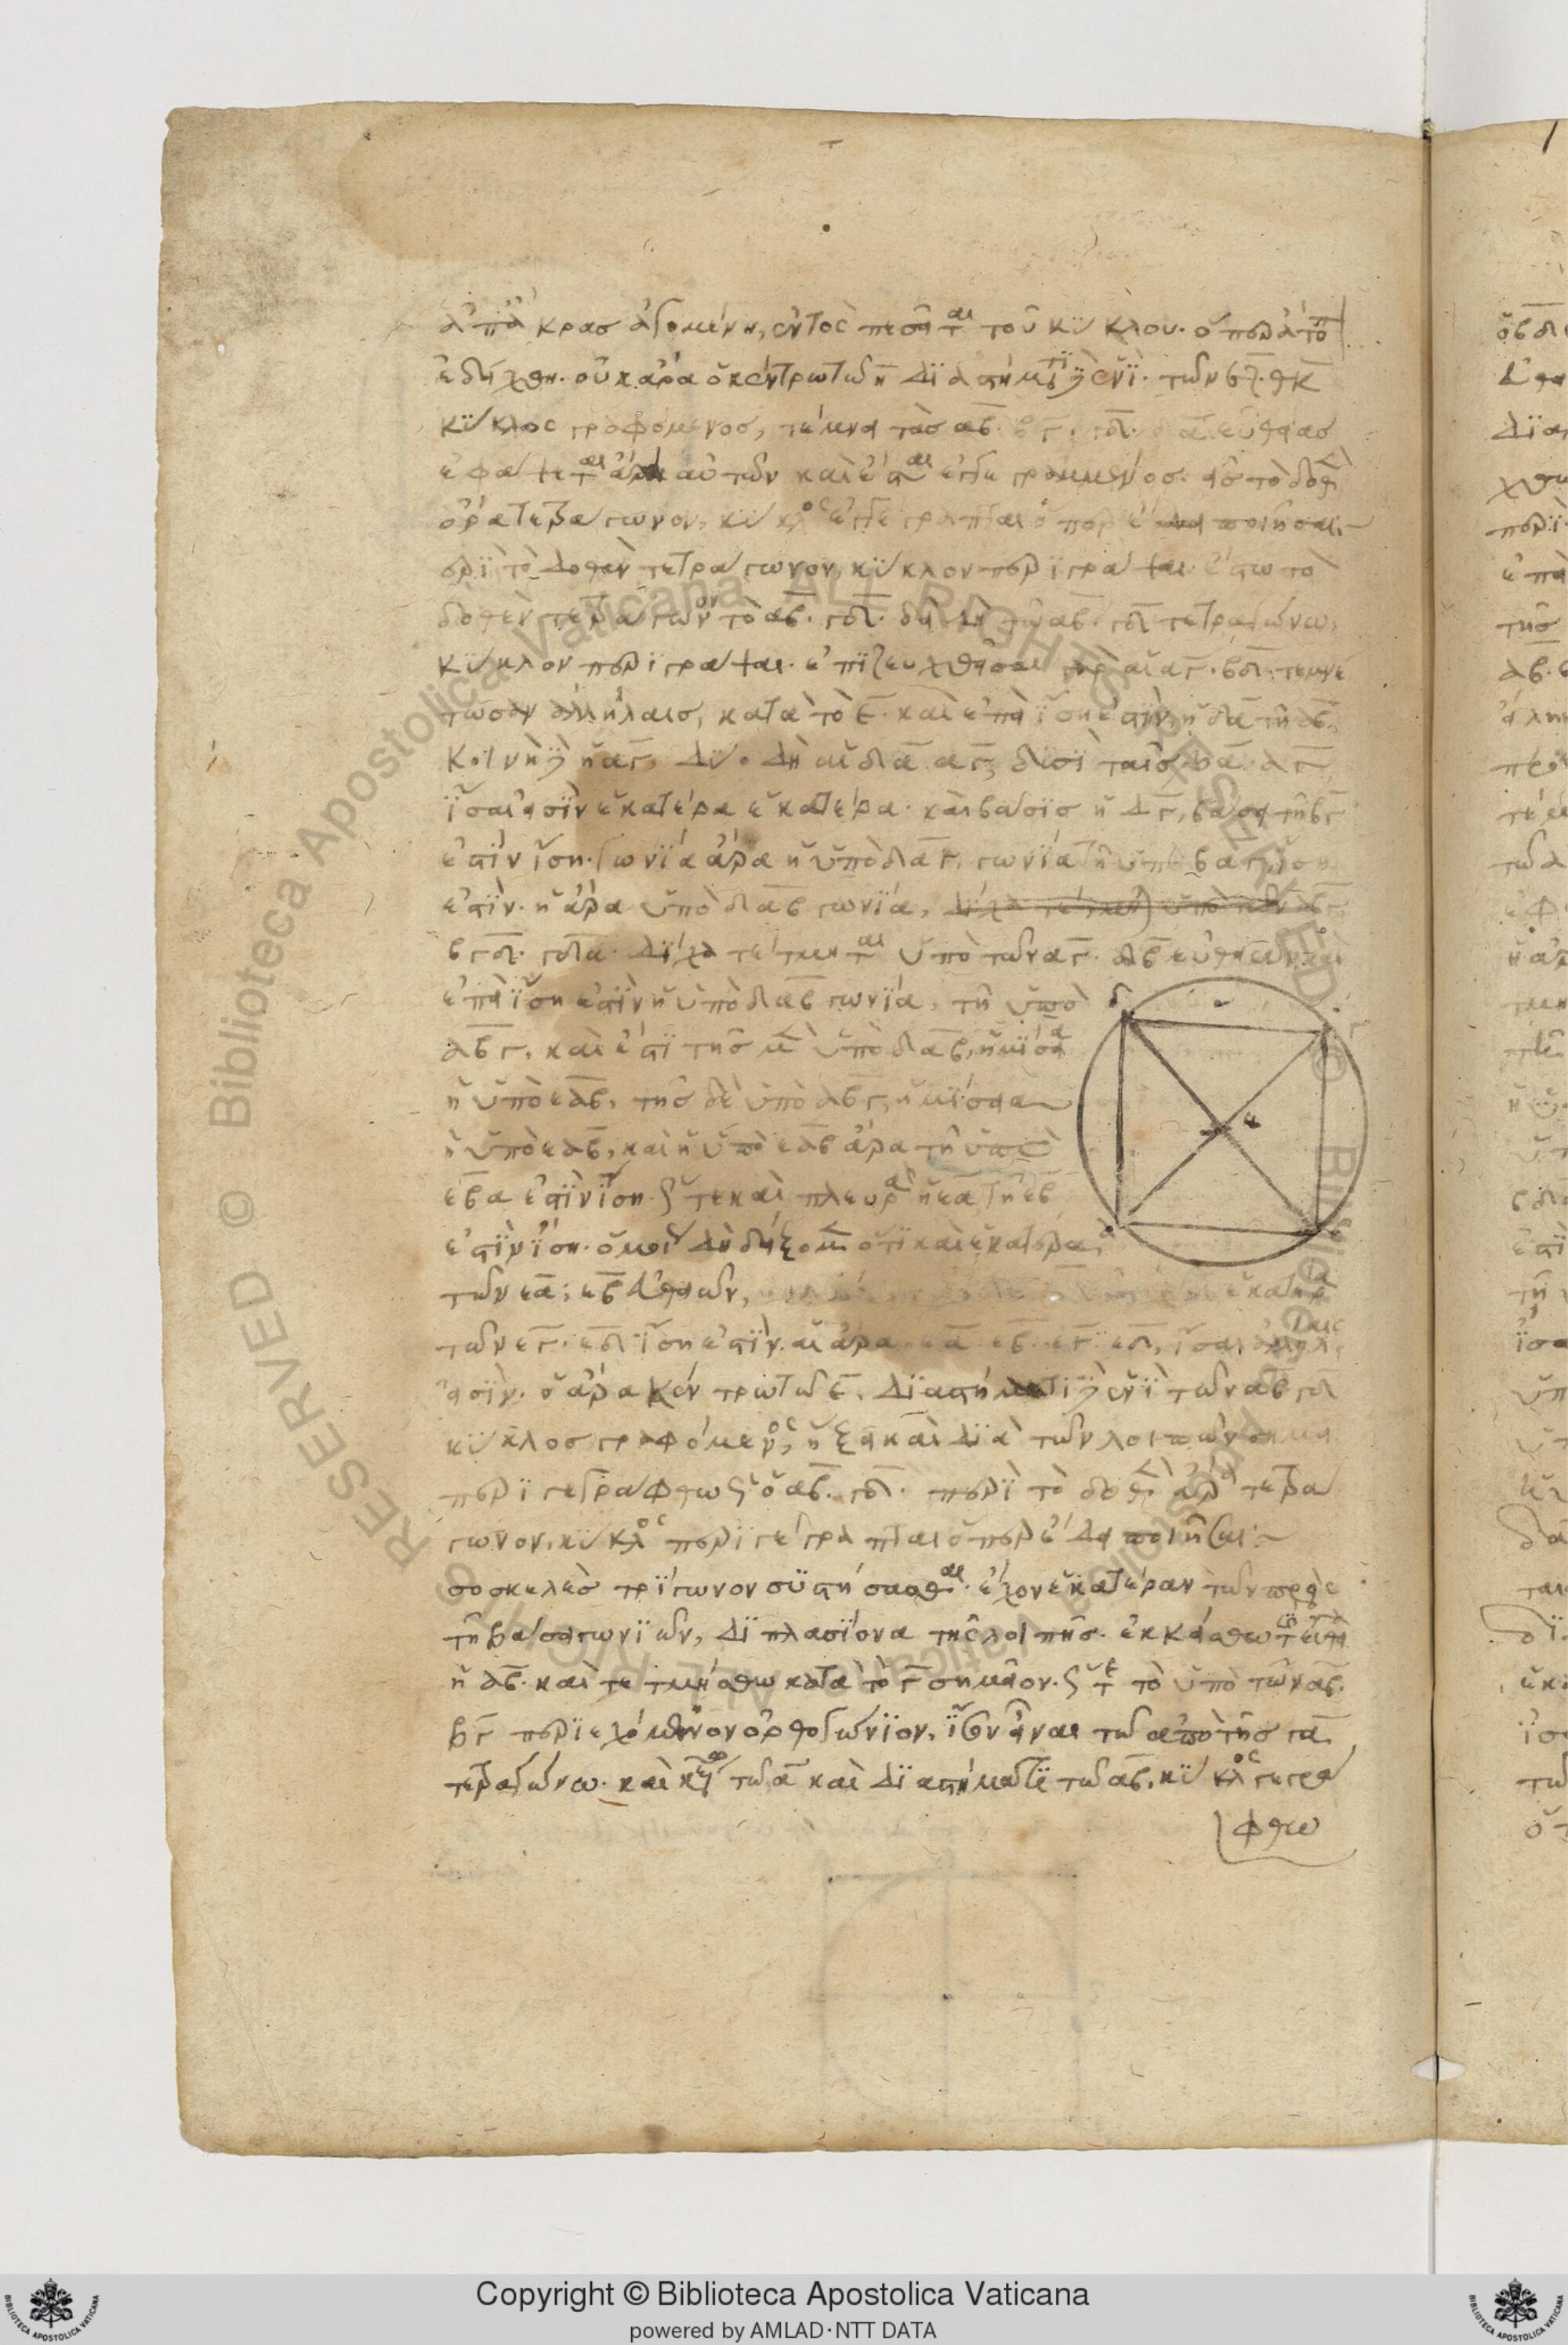 ἀπ' ἄκρας ἀγομένη, ἐντὸς πεσεῖται τοῦ κύκλου. ὅπερ ἄτοπ
ἐδείχθη. οὐκ ἄρα ὁ κέντρω τῶ η διαστήματι δὲ ἑνὶ. τῶν εζ. θκ
κύκλος γραφόμενος, τέμνει τὰς αβ. βγ. γδ. δα εὐθείας
ἐφάψεται ἄρα αὐτῶν καὶ ἔσται ἐγγεγραμμένος. εἰς τὸ δοθὲν
ἄρα τετράγωνον, κύκλος ἐγγέγραπται ὅπερ ἔδει ποιῆσαι
ερὶ τὸ δοθὲν τετράγωνον, κύκλον περιγράψαι. ἔστω τὸ
δοθὲν τετράγωνον τὸ αβ. γδ. δεῖ δὴ τὸ αβ. γδ τετραγώνω,
κύκλον περιγράψαι. ἐπιζευχθεῖσαι γὰρ αἱ αγ. βδ. τεμνέ
τωσαν ἀλλήλαις, κατὰ τὸ ε. καὶ ἐπεὶ ἴση ἐστὶν, ἡ δα τῆ αβ,
κοινὴ δὲ ἡ αγ, δύο δὴ αἱ δα αγ, δυσὶ ταῖς βα αγ,
ἴσαι εἰσὶν ἑκατέρα ἑκατέρα. καὶ βάσις ἡ δγ, βάσει τῆ βγ
ἐστὶν ἴση. γωνία ἄρα ἡ ὑπὸ δαγ, γωνία τῆ ὑπὸ βαγ, ἴση
ἐστὶν. ἡ ἄρα ὑπὸ δαβ γωνία, δίχα τέτμηται ὑπὸ τῶν αβγ
βγδ. γδα. δίχα τέτμηται ὑπὸ τῶν αγ. δβ εὐθειῶν. καὶ
ἐπεὶ ἴση ἐστὶν ἡ ὑπὸ δαβ γωνία, τῆ ὑπὸ
αβγ, καὶ ἔστι τῆς μὲν ὑπὸ δαβ, ἡμίσεια
ἡ ὑπὸ εαβ, τῆς δὲ ὑπὸ αβγ, ἡμίσεια
ἡ ὑπὸ εαβ, καὶ ἡ ὑπὸ εαβ ἄρα τῆ ὑπὸ
εβα ἐστὶν ἴση. ὥστε καὶ πλευρὰ ἡ εα τῆ εβ
ἐστὶν ἴση. ὁμοίως δὴ δείξομεν ὅτι καὶ ἑκατέρα,
τῶν εα, εβ εὐθειῶν, ἑκατέρα
τῶν εγ. εδ ἴση ἐστὶν. αἱ ἄρα εα εβ. εγ. εδ, ἴσαι ἀλλήλαις
εἰσὶν. ὁ ἄρα κέντρω τῶ ε, διαστήματι δὲ ἑνὶ τῶν αβ γδ
κύκλος γραφόμενος, ἥξει καὶ διὰ τῶν λοιπῶν σημεί
περιγεγράφθω ὡς ὁ αβ. γδ. περὶ τὸ δοθὲν ἄρα τετρά
γωνον, κύκλος περιγέγραπται ὅπερ ἔδει ποιῆσαι
σοσκελὲς τρίγωνον συστήσασθαι. ἔχον ἑκατέραν τῶν πρὸς
τῆ βάσει γωνιῶν, διπλασίονα τῆς λοιπῆς. ἐκκείσθω τις εὐθεῖα
ἡ αβ. καὶ τετμήσθω κατὰ τὸ γ σημεῖον. ὥστε τὸ ὑπὸ τῶν αβ.
βγ περιεχόμενον ὀρθογώνιον, ἴσον εἶναι τῶ ἀπὸ τῆς γα
τετραγώνω. καὶ κέντρω τῶ α καὶ διαστήματι τῶ αβ, κύκλος γεγρά
φθω
δ
γ
ε
α
β
Copyright © Biblioteca Apostolica Vaticana
powered by AMLAD·NTT DATA